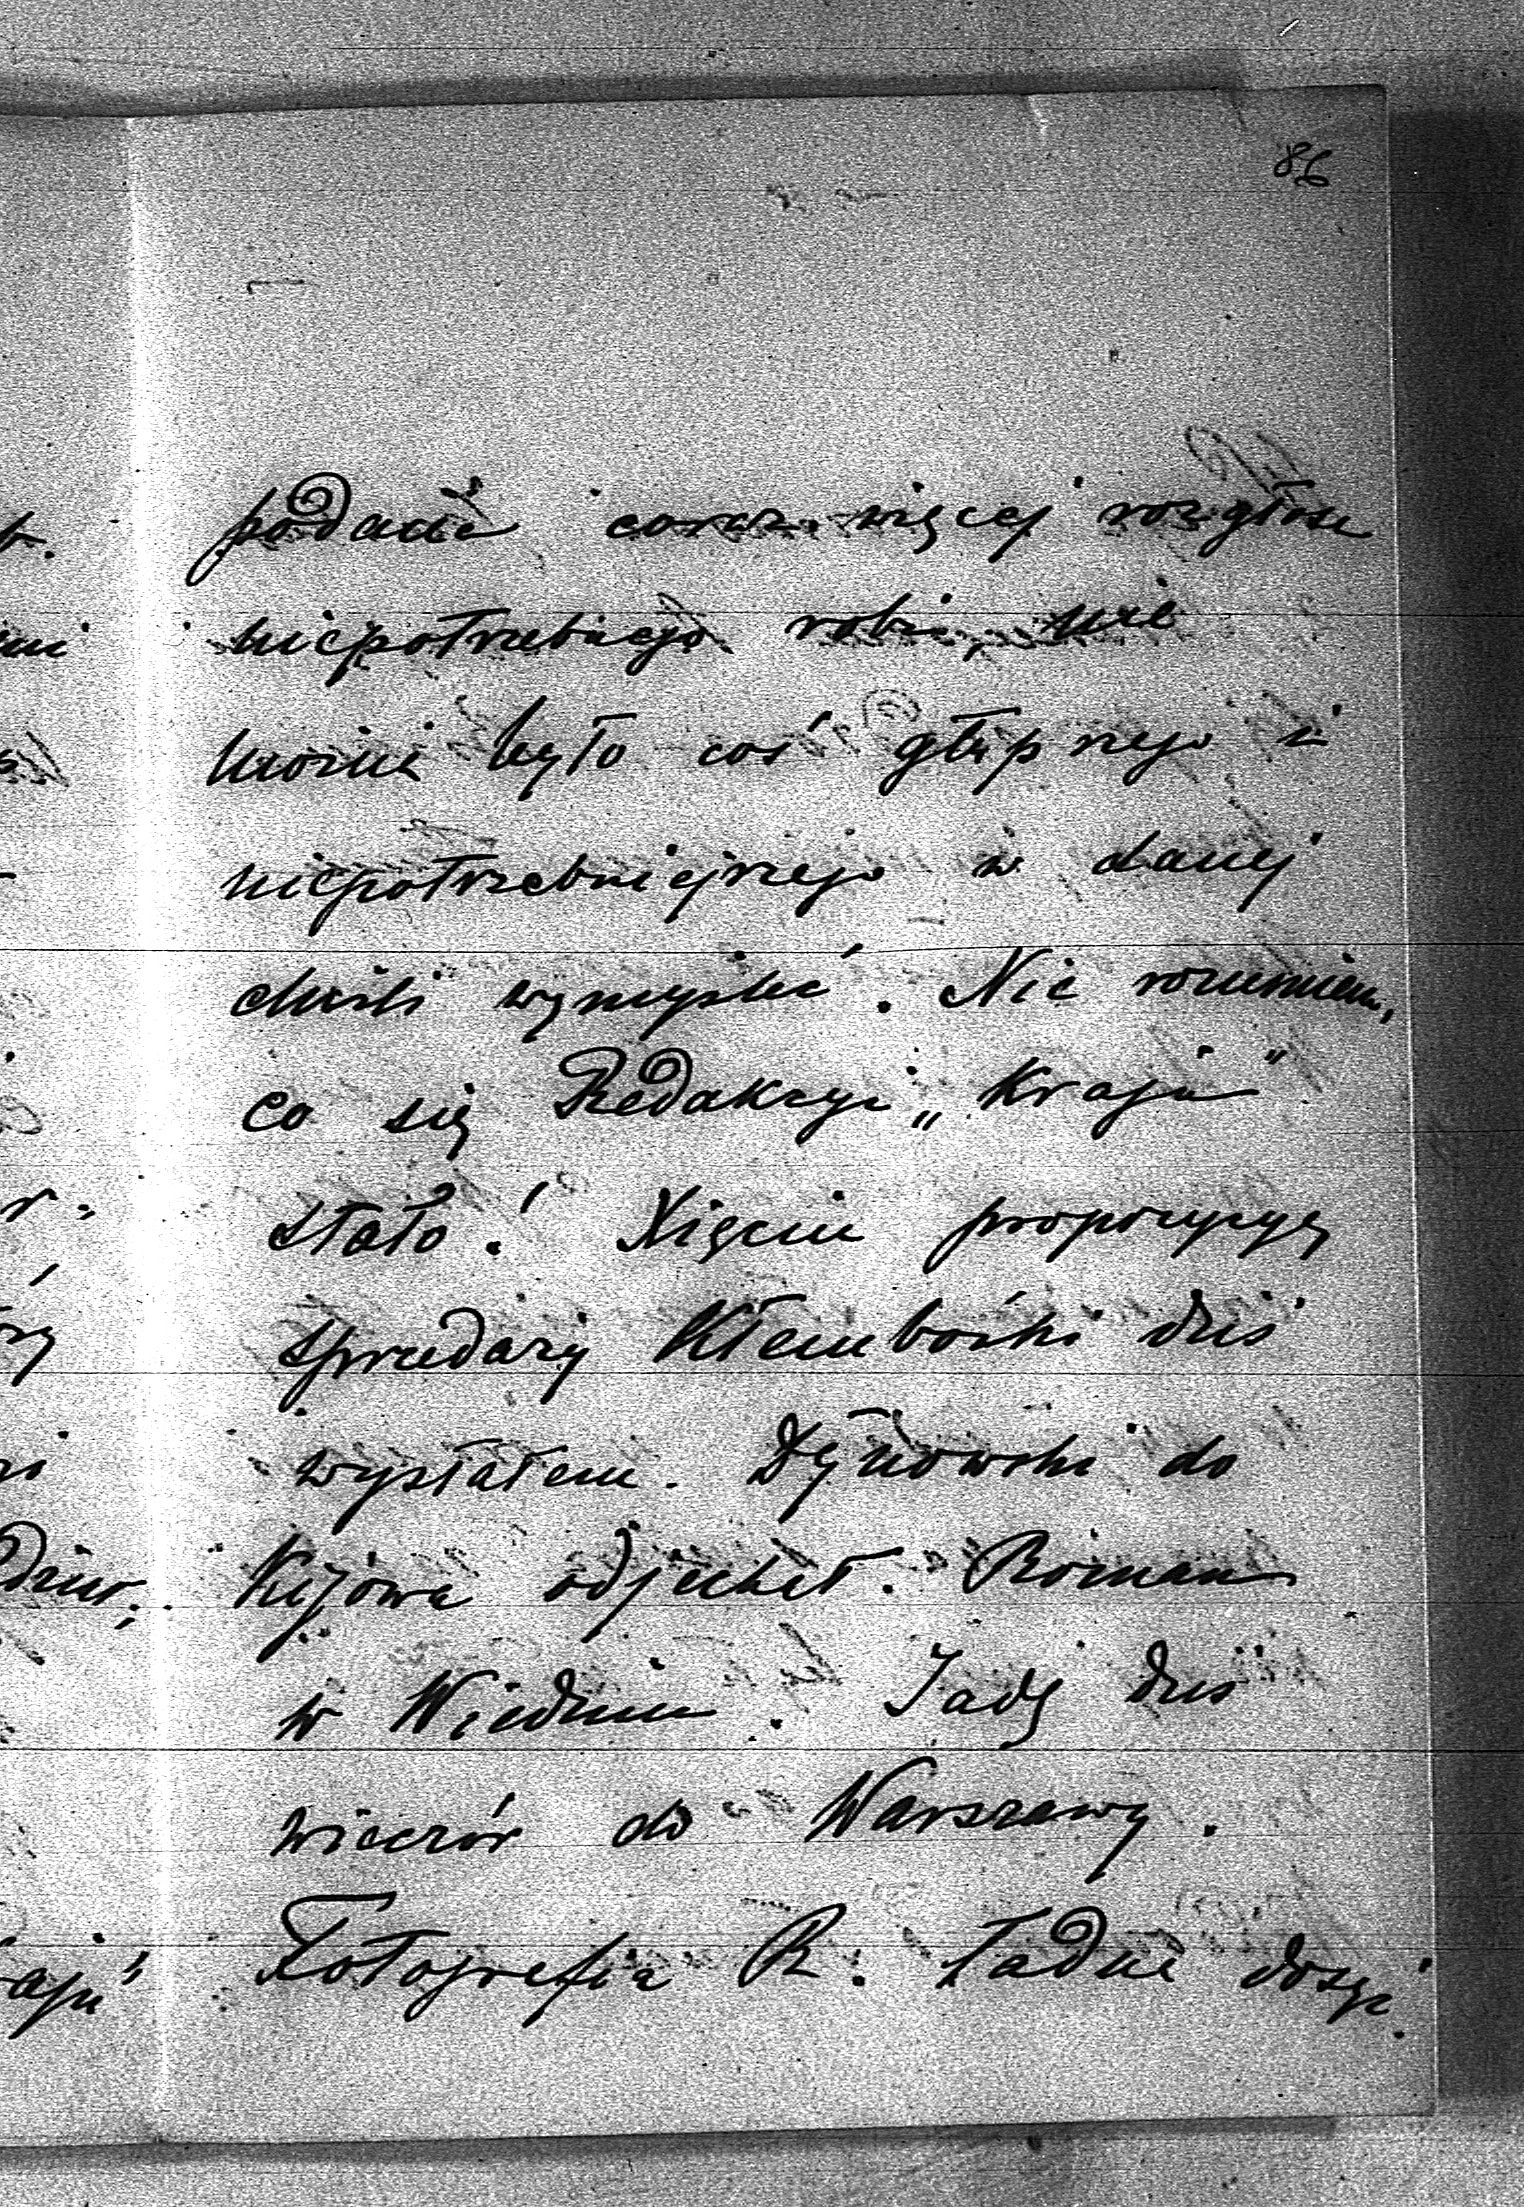 86
podanie coraz więcej rozgłosu
niepotrzebnego robi, nie
można było coś głupszego i
niepotrzebniejszego w danej
chwili wymyśleć. Nie rozumiem,
co się Redakcyi „Kraju"
stało! Xięciu propozycyę
sprzedaży Kłembówki dziś
wysłałem. Dynowski do
Kijowa odjechał. Roman
w Wiedniu. Jadę dziś
wieczór do Warszawy.
Fotografia R. ładna dosyć.